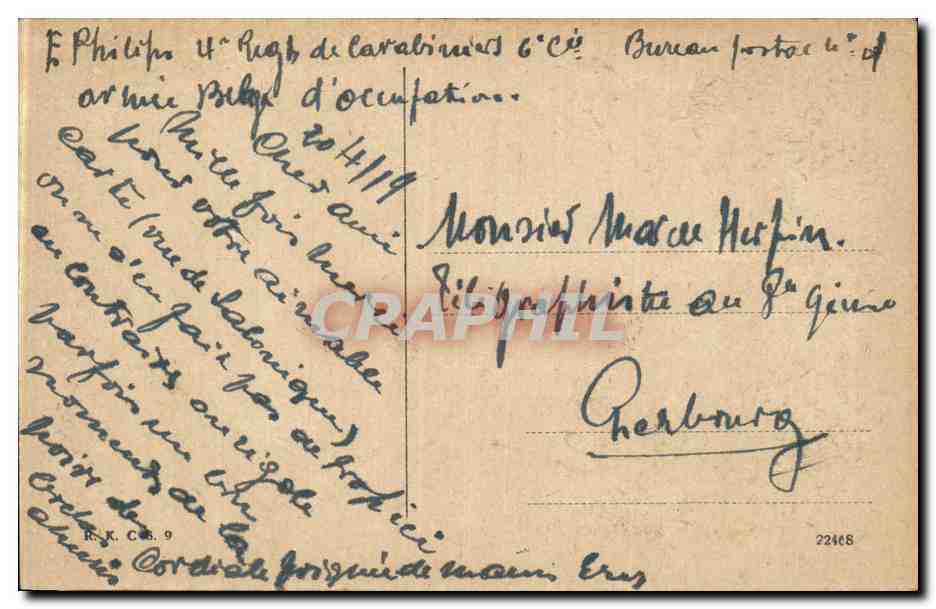 E Philips 4e Regt de Carabiniers 6e Cie Bureau postal n° 4
armée Belge d'occupation.
20/4/19
Cher ami
Mille fois merci
pour votre aimable
carte (vue de Salonique)
on ne s'en fait pas ici
au contraire on rigole
parfois un bon
moment de la
poire des
Boches
Cordiale poignée de mains
Monsieur Marcel Herpin.
Télégraphiste au 8e Génie
Cherbourg
CRAPHIL
R. K. C. B. 9
22468